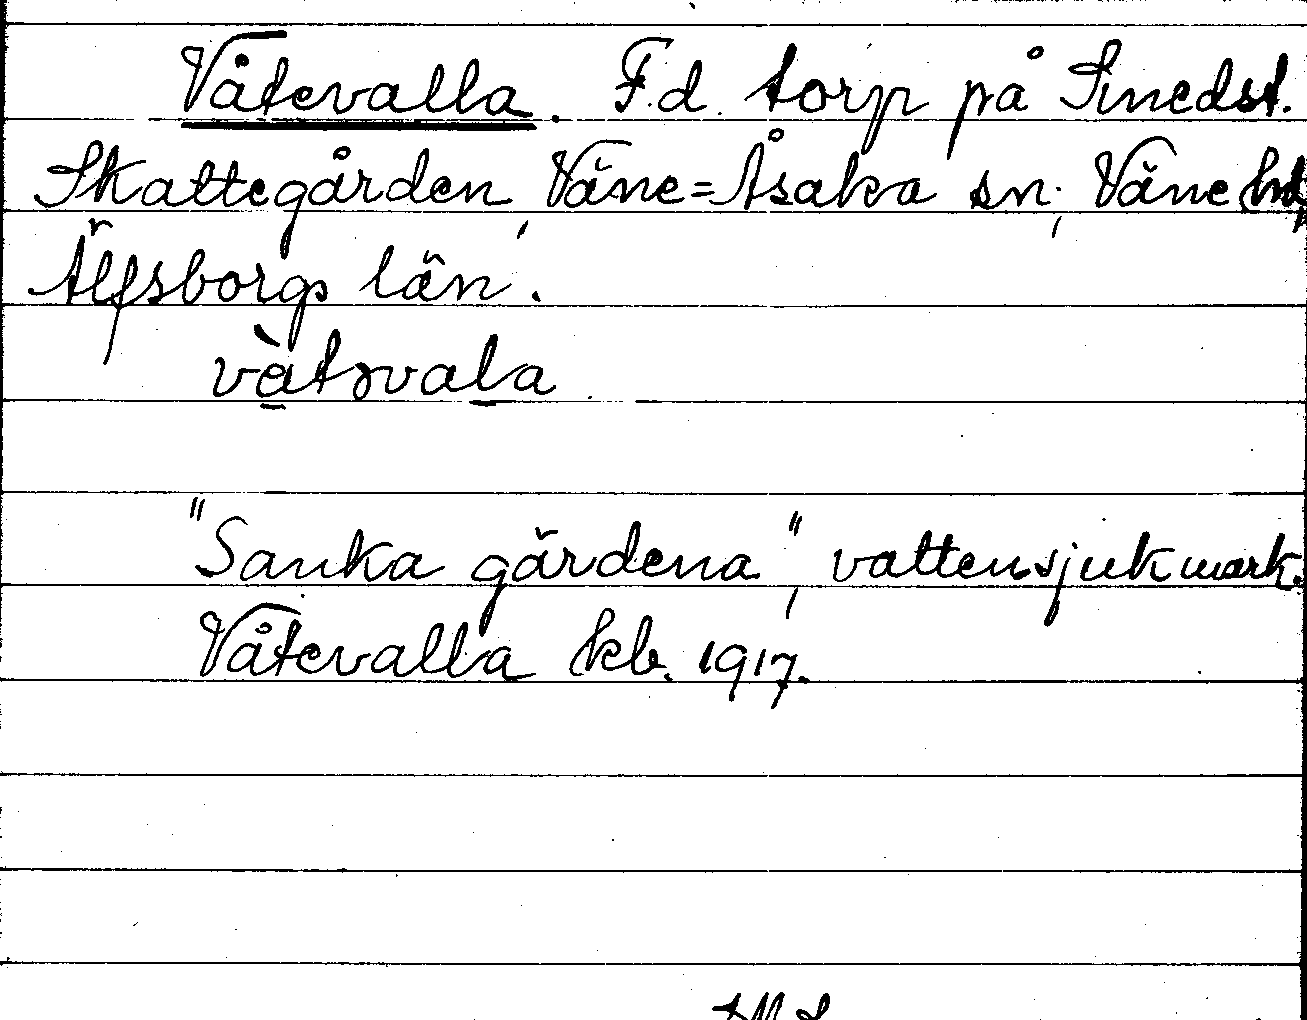 Våtevalla. F.d. torp på Smedst.
Skattegården, Väne=Åsaka sn; Väne hd,
Älfsborgs län.
vàtəvala
"Sanka gärdena", vattensjuk mark.
Våtevalla kb. 1917.